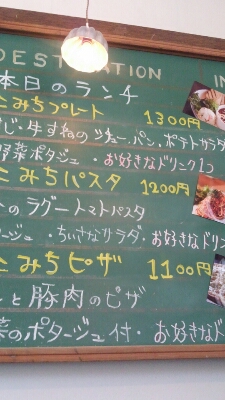 DESTINATION
本日のランチ
こみちプレート 1300円
じ・牛すねのシチュー・パン・ポテトサラダ
野菜ポタージュ・お好きなドリンク1つ
こみちパスタ 1200円
のラグートマトパスタ
ージュ・ちいさなサラダ・お好きなドリン
こみちピザ 1100円
と豚肉のピザ
菜のポタージュ付・お好きなド